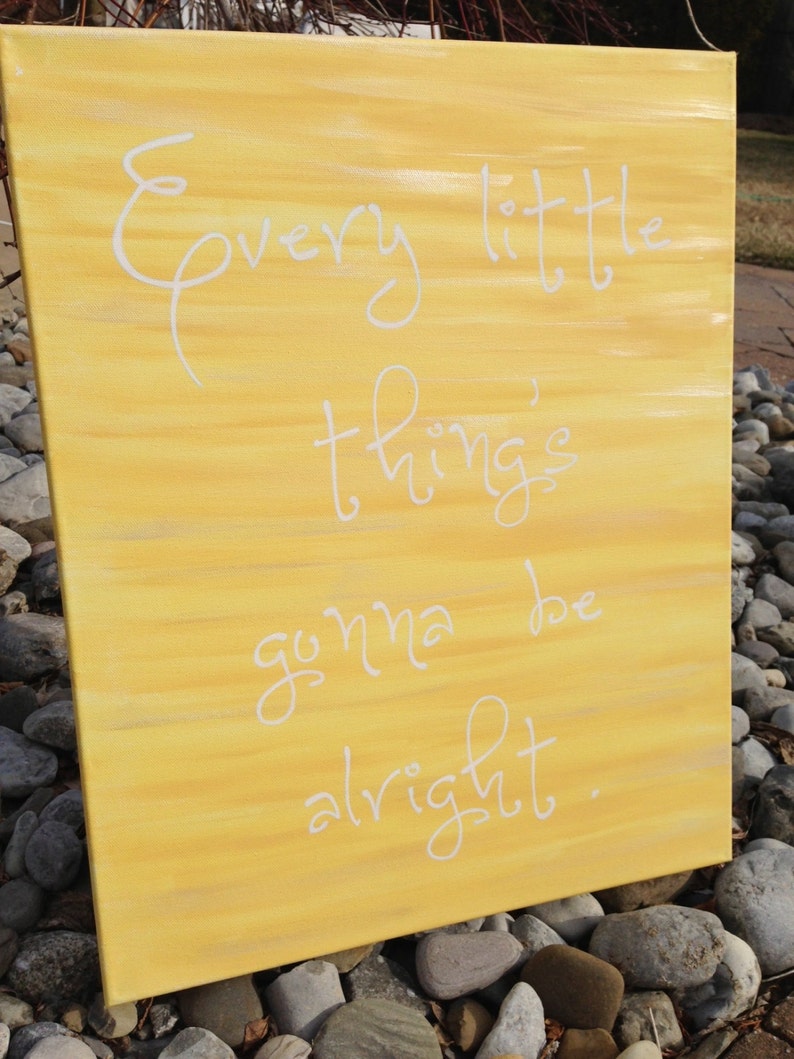 Every little
thing's
gonna be
alright .